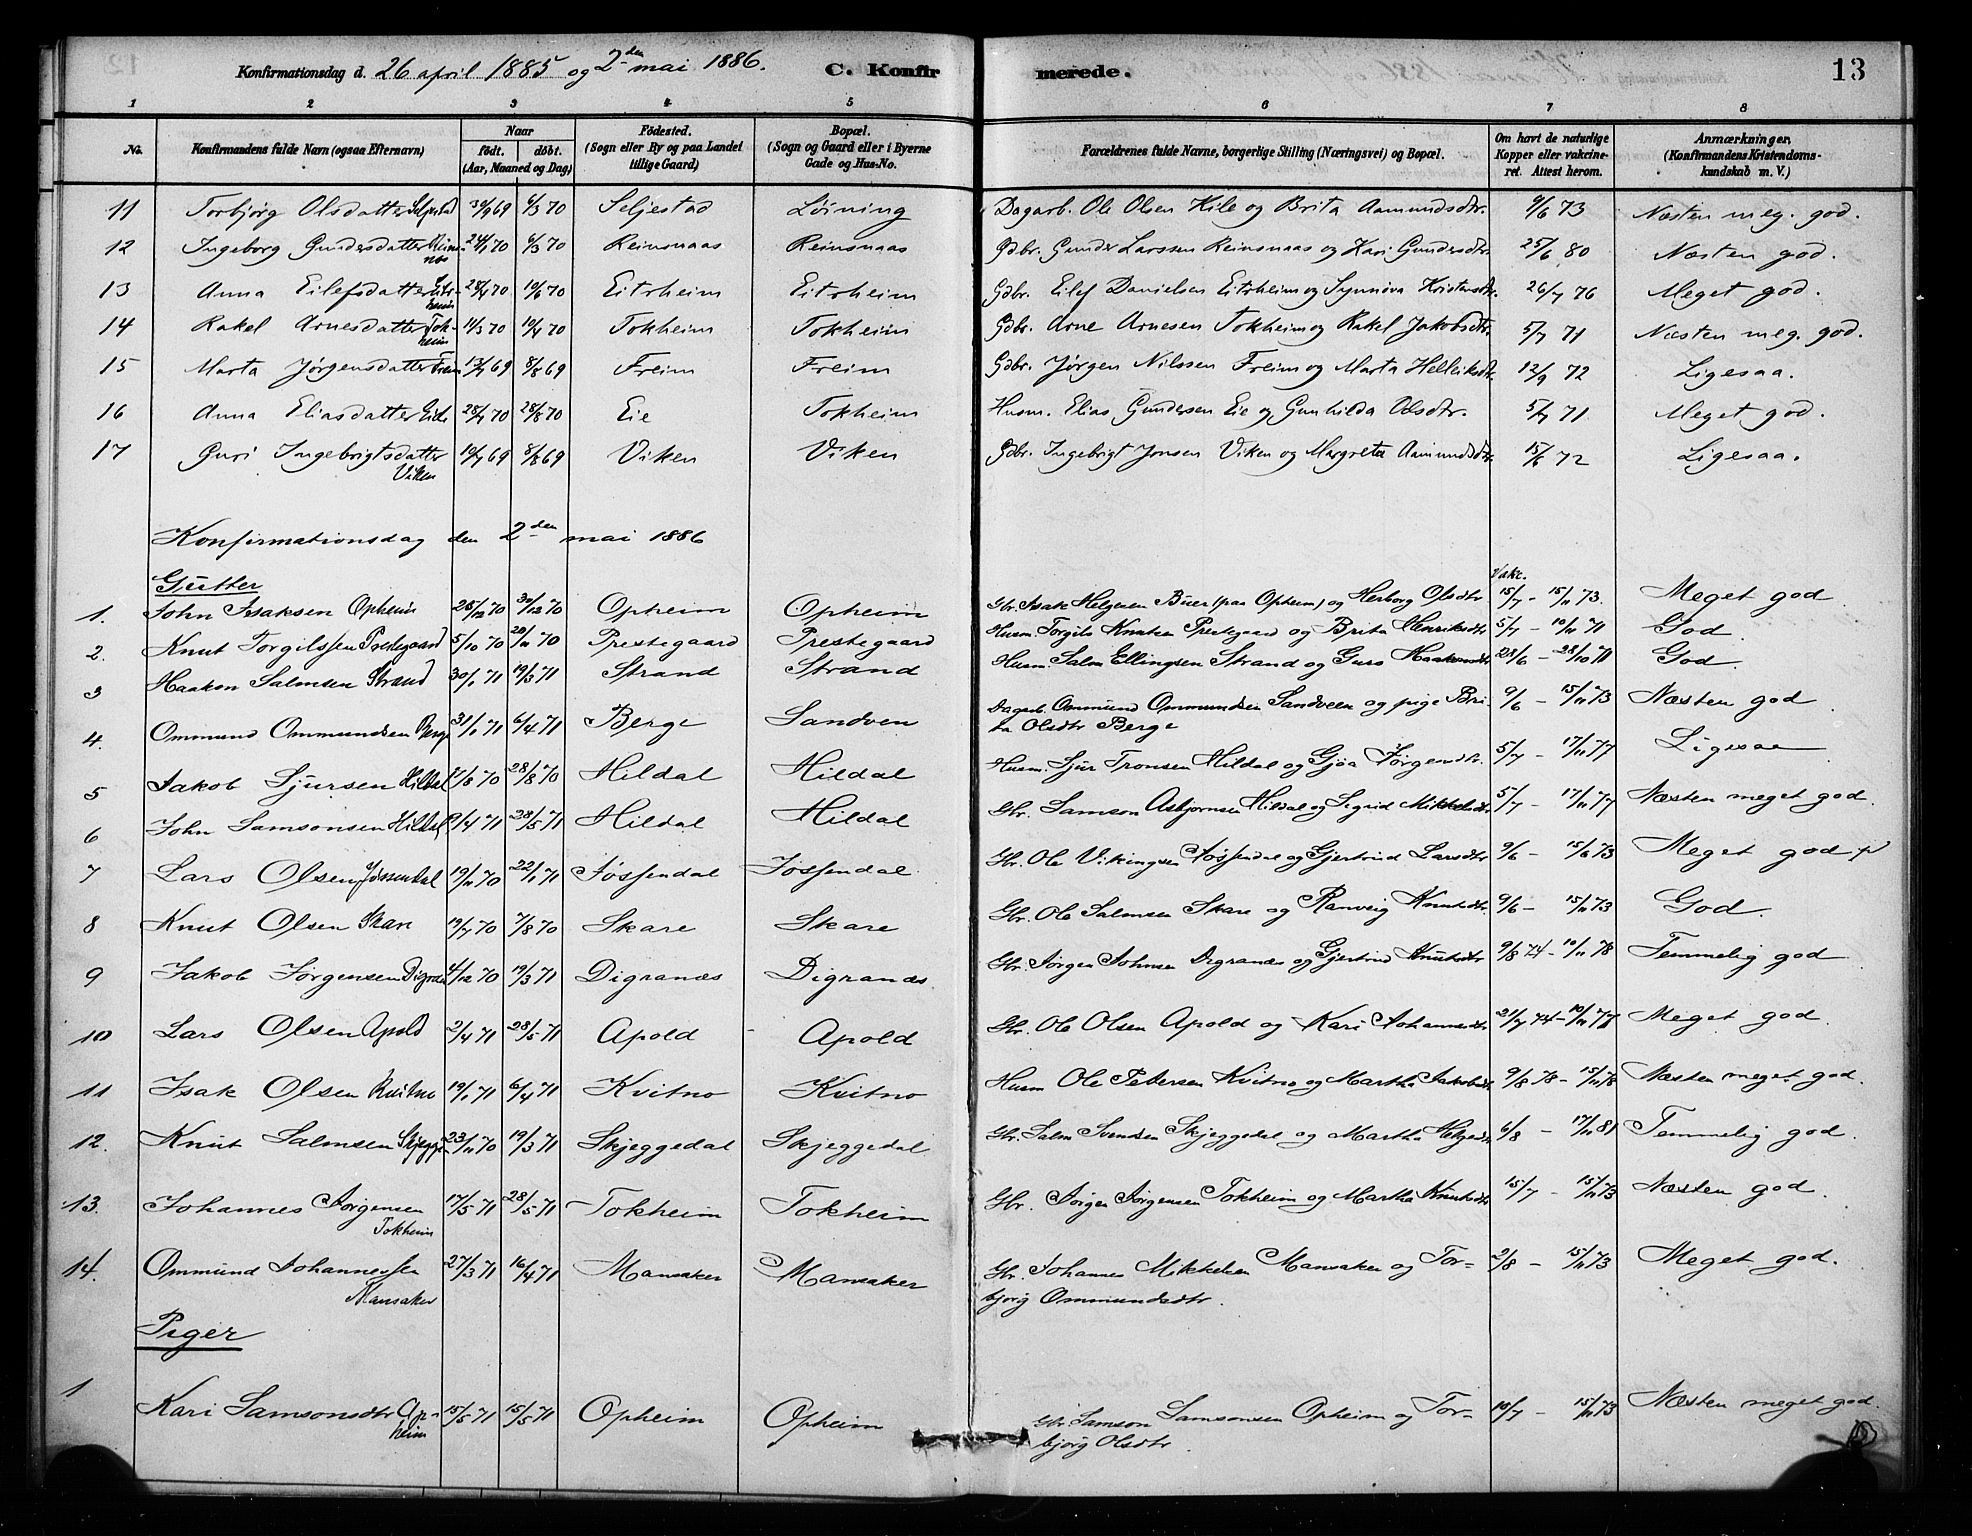 Konfirmationsdag d. 26 april 1885 og 2den mai 1886. C. Konfirmerede. 13
1 2 3 4 5 6 7 8
No. Konfirmandens fulde Navn (ogsaa Efternavn) Naar födt. döbt. (Aar, Maaned og Dag) Födested. (Sogn eller By og paa Landet tillige Gaard) Bopæl. (Sogn og Gaard eller i Byerne Gade og Hus-No. Forældrenes fulde Navne, borgerlige Stilling (Næringsvei) og Bopæl. Om havt de naturlige Kopper eller vakcineret. Attest herom. Anmærkninger. (Konfirmandens Kristendomskundskab m. V.)
11 Torbjörg Olsdatter Seljestad 30/9 69 6/3 70 Seljestad Löining Dagarb. Ole Olsen Kile og Brita Aamundsdtr. 9/6 73 Næsten meg. god.
12 Ingeborg Gundersdatter Reinsnos 24/1 70 6/3 70 Reinsnaas Reinsnaas Gdbr. Gunder Larssen Reinsnaas og Kari Gundersdtr. 25/6 80 Næsten god.
13 Anna Eilefsdatter Eitrheim 28/4 70 19/6 70 Eitrheim Eitrheim Gdbr. Eilef Danielsen Eitrheim og Synnöva Kristensdtr. 26/7 76 Meget god.
14 Rakel Arnesdatter Tokheim 11/3 70 19/4 70 Tokheim Tokheim Gdbr. Arne Arnesen Tokheim og Rakel Jakobsdtr. 5/7 71 Næsten meg. god.
15 Marta Jørgensdatter Freim 13/7 69 8/8 69 Freim Freim Gdbr. Jørgen Nilssen Freim og Marta Helleiksdtr. 12/9 72 Ligesaa.
16 Anna Eliasdatter Eide 28/7 70 28/8 70 Eie Tokheim Husm. Elias Gundersen Eie og Gunhilda Olsdtr. 5/7 71 Meget god.
17 Guri Ingebrigtsdatter Viken 19/7 69 8/8 69 Viken Viken Gdbr. Ingebrigt Jonsen Viken og Margreta Aamundsdtr. 15/6 72 Ligesaa.
Konfirmationsdag den 2den mai 1886
Gutter Vakc.
1. John Isaksen Opheim 28/12 70 30/12 70 Opheim Opheim Gbr. Isak Helgesen Buer (paa Opheim) og Herborg Olsdtr 15/7 - 15/11 73. Meget god
2. Knut Torgilssen Prestegaard 5/10 70 20/11 70 Prestegaard Prestegaard Husm. Torgils Knutsen Prestegaard og Brita Henriksdtr 5/7 - 10/11 71 God.
3 Haakon Salmsen Strand 30/1 71 19/3 71 Strand Strand Husm Salm Ellingsen Strand og Guro Haakonsdtr 28/6 - 28/10 71 God.
4. Ommund Ommundsen Berge 31/1 71 6/4 71 Berge Sandven Dagarb. Ommund Ommundsen Sandveen og pige Brita Olsdtr Berge 9/6 - 15/11 73 Næsten god
5 Jakob Sjursen Hildal 70 28/8 70 Hildal Hildal Husm. Sjur Tronsen Hildal og Gjøa Jørgensdtr. 5/7 - 17/11 77 Ligesaa
6 John Samsonsen Hildal /4 71 28/5 71 Hildal Hildal Gbr. Samson Asbjørnsen Hildal og Sigrid Mikkelsdtr 5/7 - 17/11 77 Næsten meget god.
7 Lars Olsen Jøssendal 19/11 70 22/1 71 Jössendal Jössendal Gbr. Ole Vikingsen Jössendal og Gjertrud Larsdtr 9/6 - 15/6 73 Meget god
8 Knut Olsen Skare 19/7 70 7/8 70 Skare Skare Gbr. Ole Salmsen Skare og Ranveig Knutsdtr 9/6 - 15/11 73 God.
9 Jakob Jörgensen Digranes 4/12 70 19/3 71 Digranæs Digranæs. Gbr. Jørgen Johnsen Digranæs og Gjertrud Knutsdtr 9/8 74 - 10/11 78 Temmelig god
10 Lars Olsen Apold 2/4 71 28/5 71 Apold Apold Gbr. Ole Olsen Apold og Kari Johannesdtr 21/7 74 - 10/11 77 Meget god.
11 Isak Olsen Kvitno 19/1 71 6/4 71 Kvitno Kvitno Husm Ole Pedersen Kvitno og Martha Jakobsdtr 9/8 78 - 15/11 78 Næsten meget god.
12. Knut Salmsen Skjegge 23/11 70 19/3 71 Skjeggedal Skjeggedal Gbr. Salm Svendsen Skjeggedal og Martha Helgesdtr 6/8 - 17/11 81 Temmelig god.
13. Johannes Jörgensen Tokheim 17/5 71 28/5 71 Tokheim Tokheim Gbr. Jørgen Jørgensen Tokheim og Martha Knutsdtr 15/7 - 15/11 73 Næsten god.
14. Ommund Johannessen Mansaker 27/3 71 16/4 71 Mansaker Mansaker Gbr. Johannes Mikkelsen Mansaker og Torbjørg Ommundsdtr. 2/8 - 15/11 73 Meget god.
Piger
1 Kari Samsonsdtr Opheim 15/5 71 15/5 71 Opheim Opheim Gbr Samson Samsonsen Opheim og Torbjørg Olsdtr. 10/7 - 15/11 73 Næsten meget god.